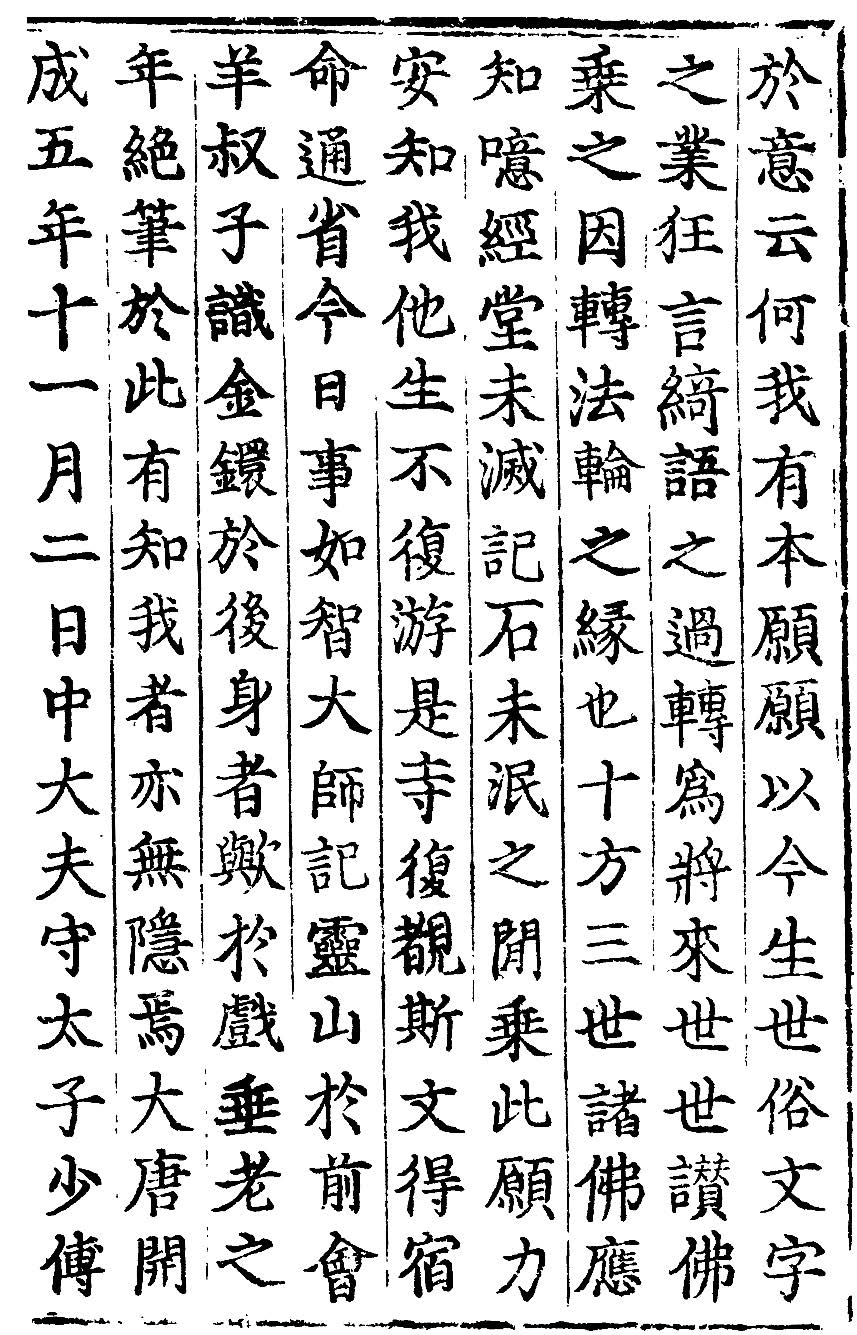 於意云何我有本願願以今生世俗文字
之業狂言綺語之過轉為將來世世讃佛
乗之因轉法輪之緣也十方三世諸佛應
知噫經堂未滅記石未泯之閒乗此願力
安知我他生不復游是寺復覩斯文得宿
命通省今日事如智大師記靈山於前會
羊叔子識金鐶於後身者歟於戲垂老之
年絕筆於此有知我者亦無隱焉大唐開
成五年十一月二日中大夫守太子少傅